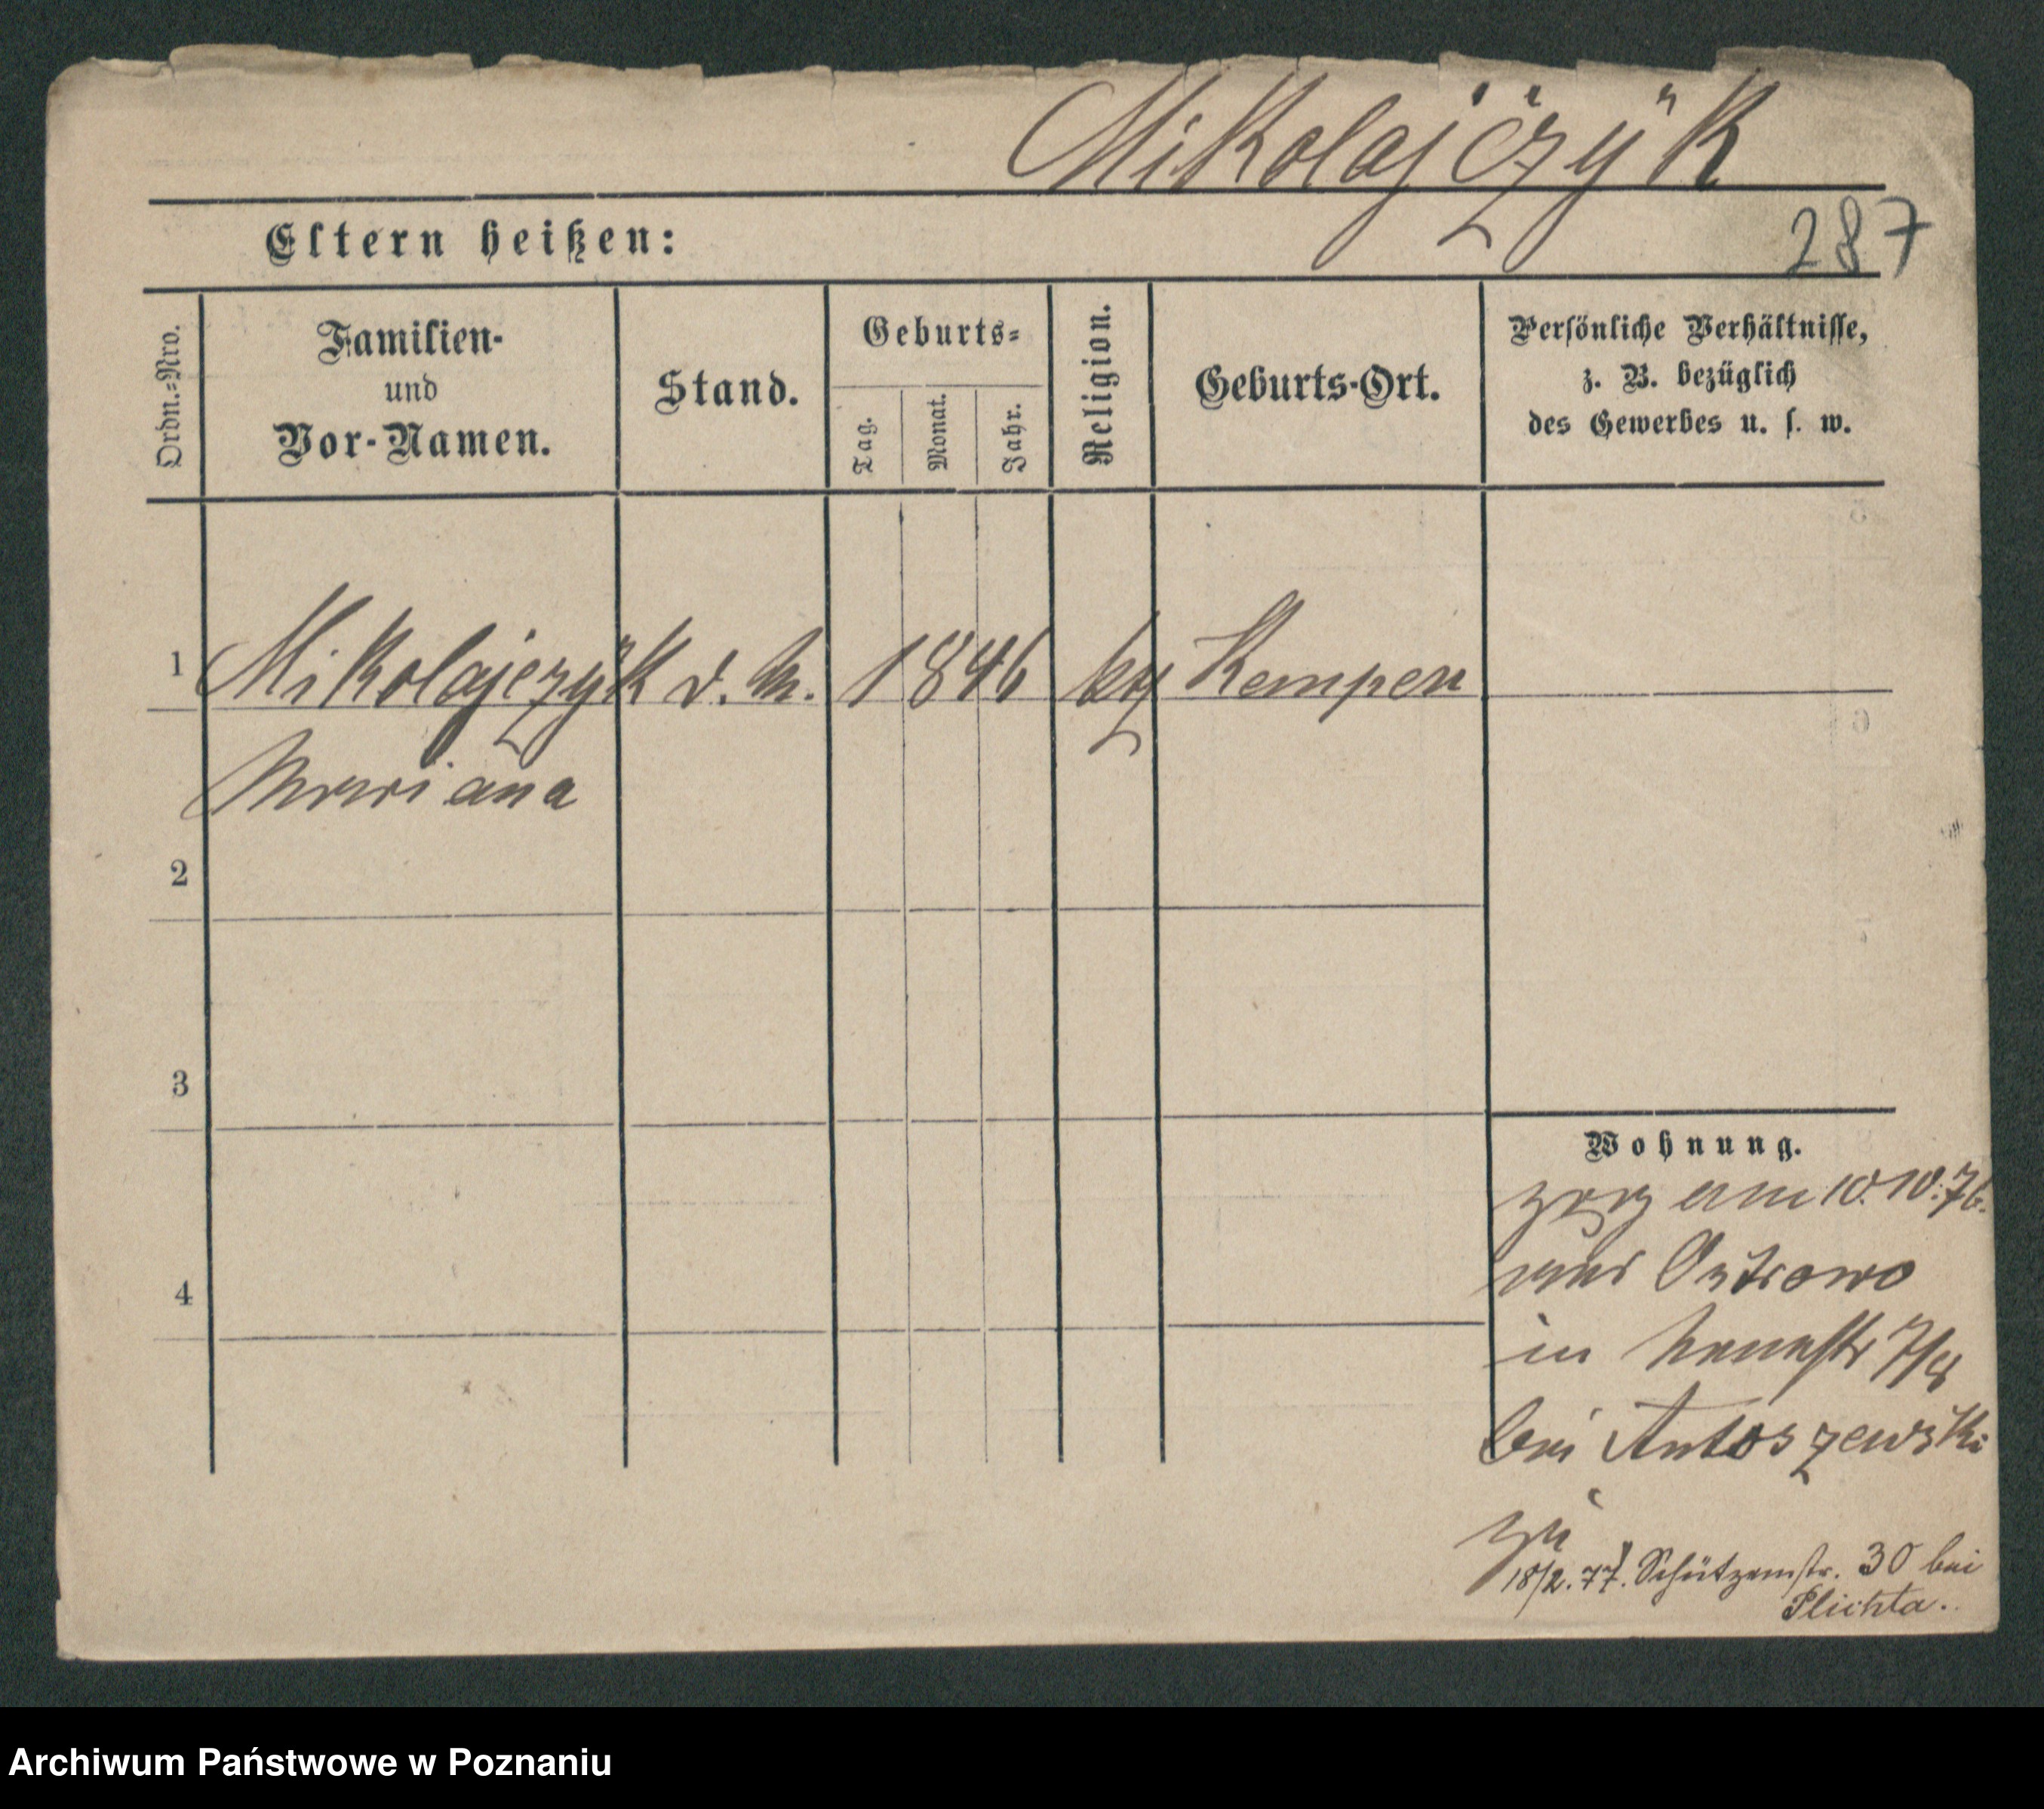 Mikolajczÿk
287
Eltern heißen:
Ordn.=Nro.
Familien-
und
Vor-Namen.
Stand.
Geburts=
Tag.
Monat.
Jahr.
Religion.
Geburts-Ort.
Persönliche Verhältnisse,
z. B. bezüglich
des Gewerbes u. s. w.
1 Mikolajczÿk d. M. 1846 Kempen
Mariana
2
3
4
Wohnung.
zog am 10.10.76.
aus Ostrowo
in 7/8
bei Antoszewski
zu
18/2. 77. Schützenstr. 30 bei
Plichta.
Archiwum Państwowe w Poznaniu